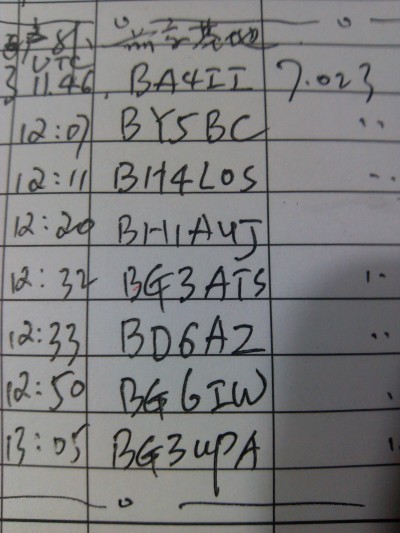 UTC
11.46 BA4II 7.023
12:07 BY5BC "
12:11 BH4LOS "
12:20 BH1AUJ
12:32 BG3ATS "
12:33 BD6AZ "
12:50 BG6IW
13:05 BG3UPA "